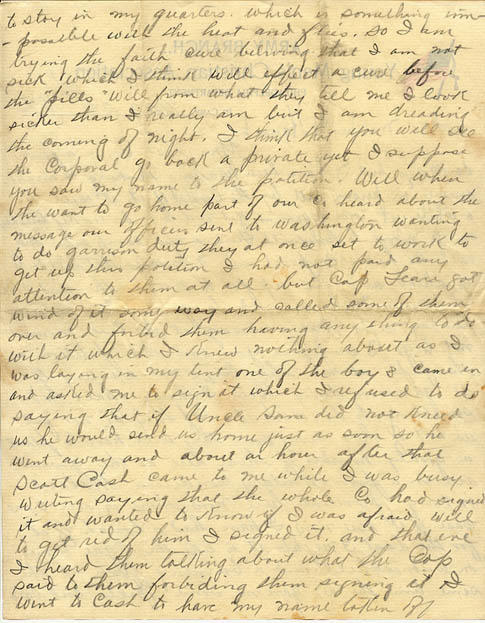 to stay in my quarters. which is something im-
-possable with the heat and flies. So I am
trying the faith cure beliving that I am not
sick which I think will effect a cure before
the "pills" will from what they tell me I look
sicker than I really am but I am dreading
the coming of night. I think that you will see
the Corporal go back a private yet I suppose
you saw my name to the petition. Well when
the want to go home part of our Co heard about the
message our officers sent to Washington wanting
to do garrison duty they at once set to work to
get up this potition I had not paid any
attention to them at all. but Cap got
wind of it some way and called some of them
over and forbid them having any thing to do
with it which I knew nothing about as I
was laying in my tent one of the boys came in
and asked me to sign at which I refused to do
saying that if Uncle Sam did not kneed
us he would send us home just as soon so he
went away and about an hour after that
Scott Cash came to me while I was busy
writing saying that the whole Co had signed
it and wanted to know if I was afraid well
to get rid of him I signed it. and that eve
I heard them talking about what the Cap
said to them forbiding them signing it I
went to Cash to have my name taken of